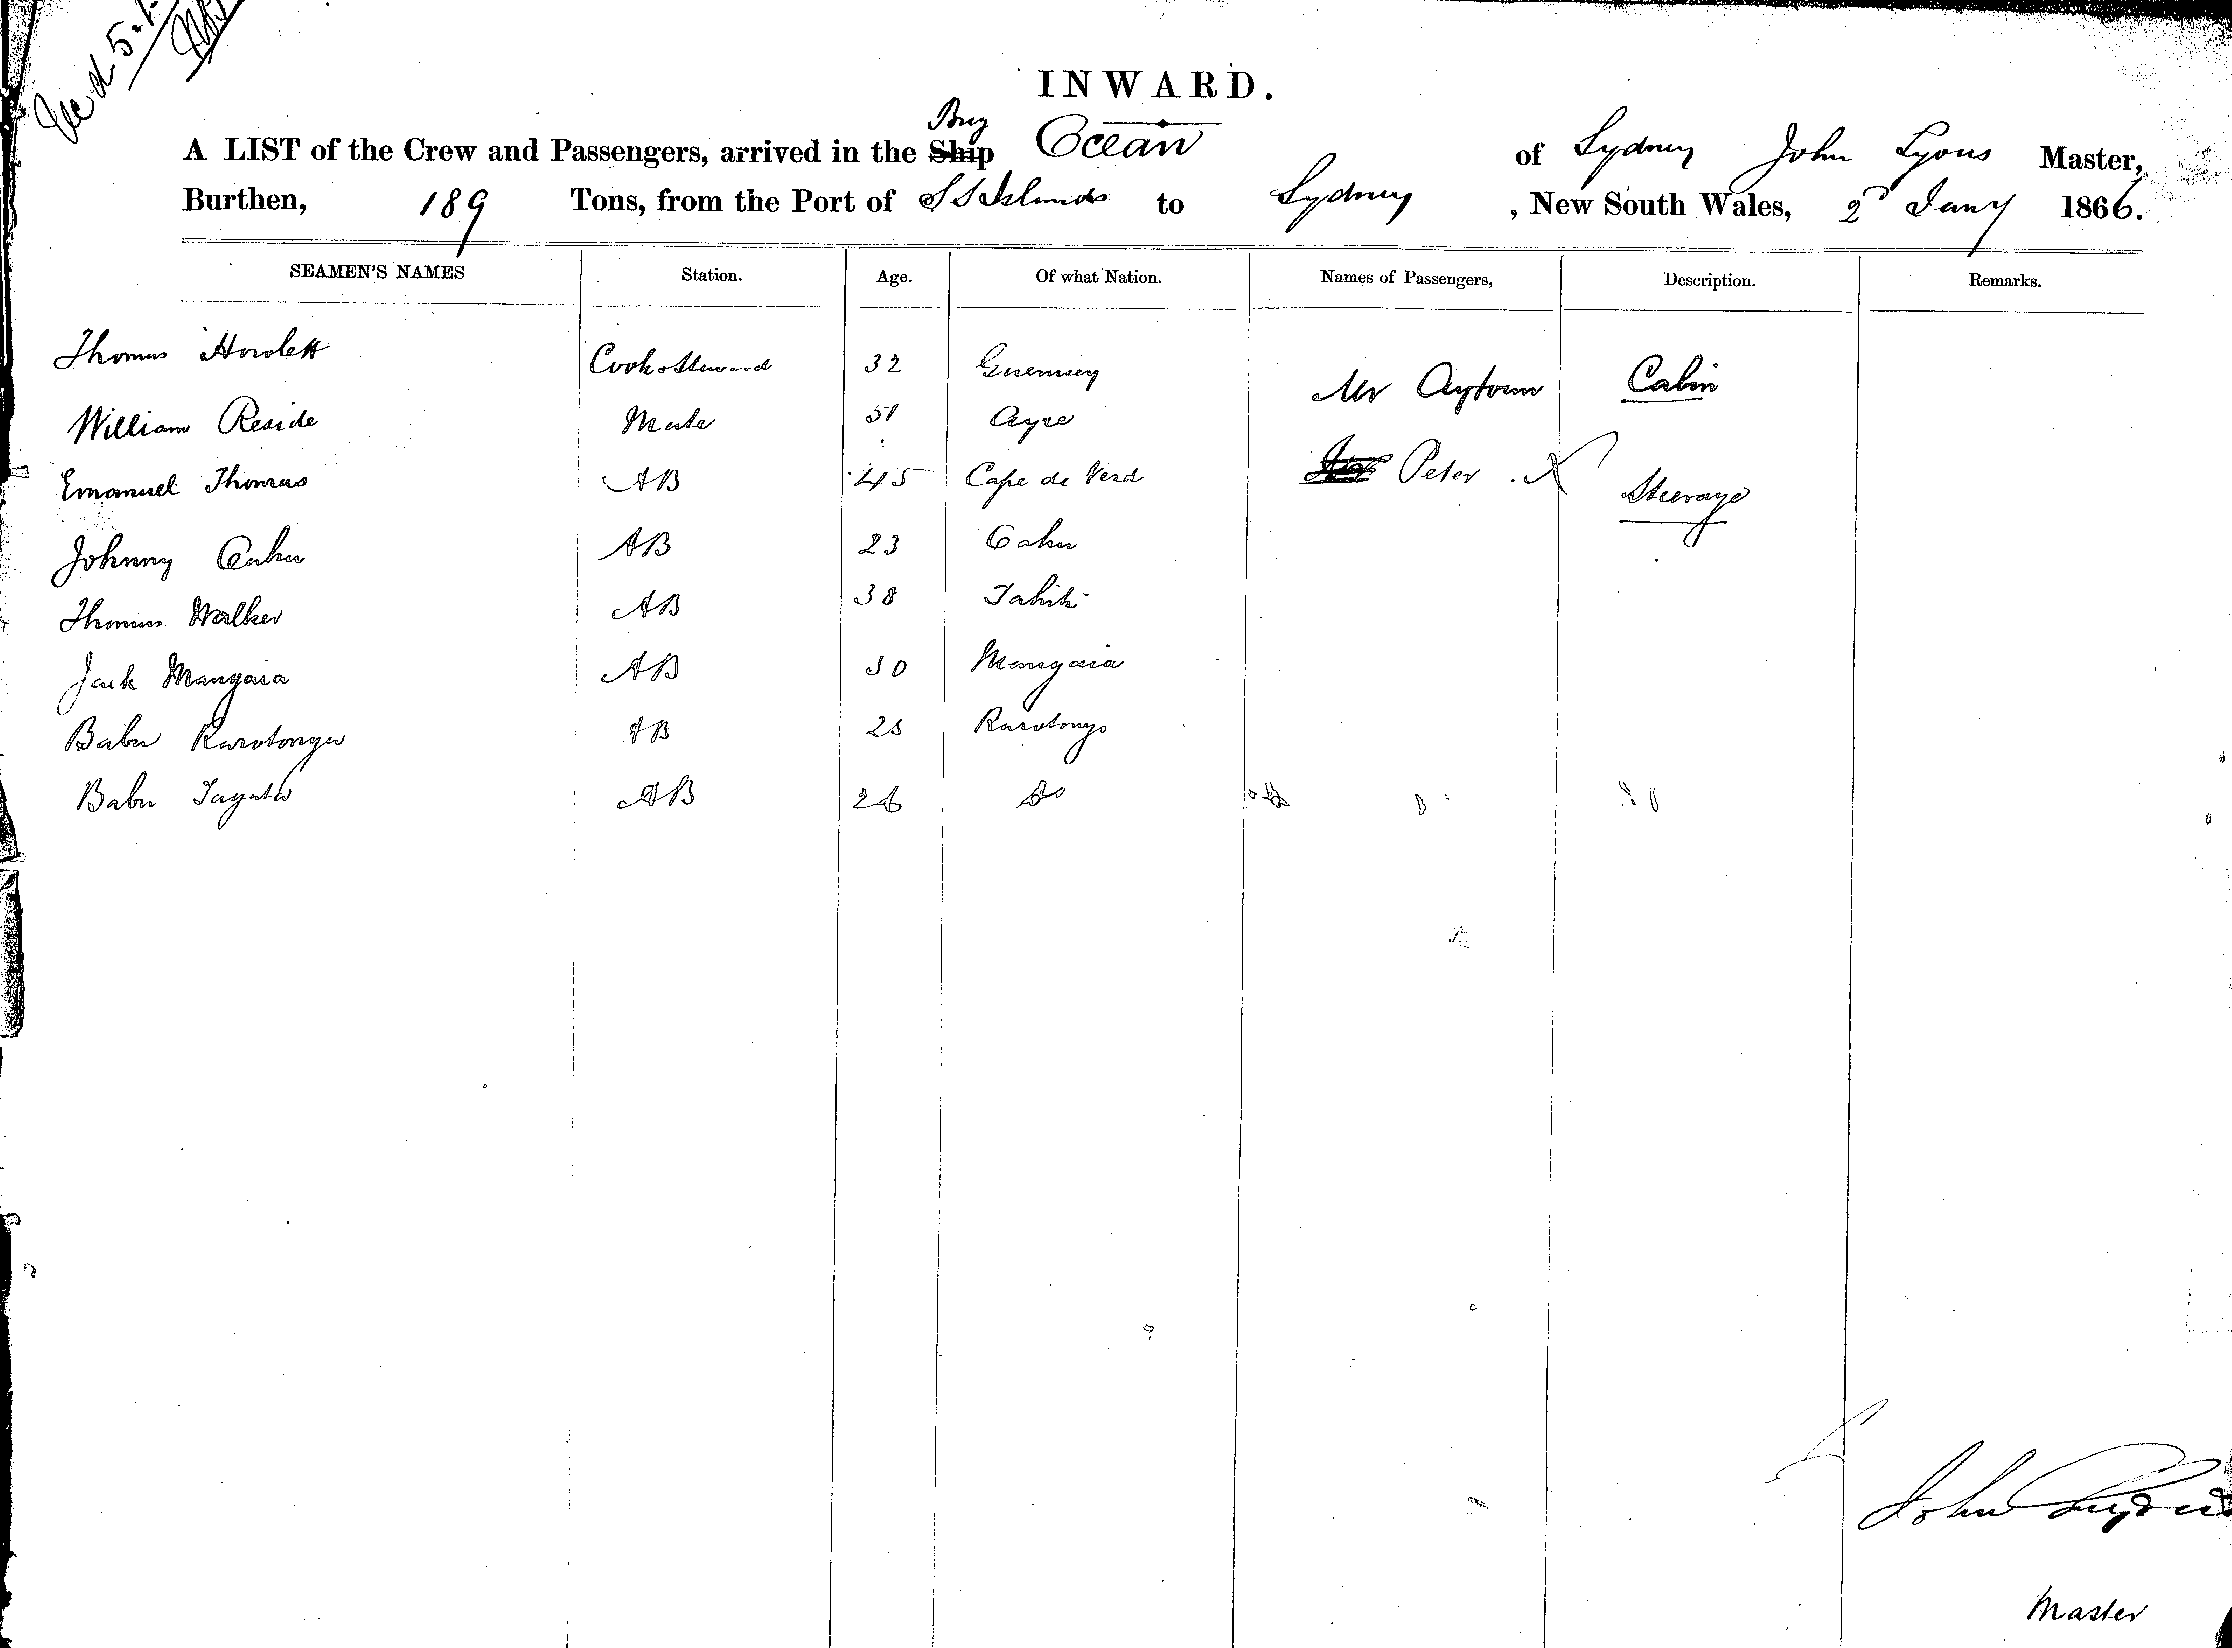 INWARD.
Brig
A LIST of the Crew and Passengers, arrived in the Ship Ocean of Sydney John Lyons Master,
Burthen, 189 Tons, from the Port of S S Islands to Sydney, New South Wales, 2d Jany 1866.
SEAMEN'S NAMES Station. Age. Of what Nation. Names of Passengers, Description. Remarks.
Thomas Howlett Cook & Steward 32 Guernsey Mr Aytoun Cabin
William Reside Mate 51 Ayre
Emanuel Thomas AB 45 Cape de Verd Peter X Steerage
Johnny Oahu AB 23 Oahu
Thomas Walker AB 38 Tahiti
Jack Mangaia AB 30 Mangaia
Babu Rarotonga AB 25 Rarotonga
Babu AB 26 Do
John Lyons
Master